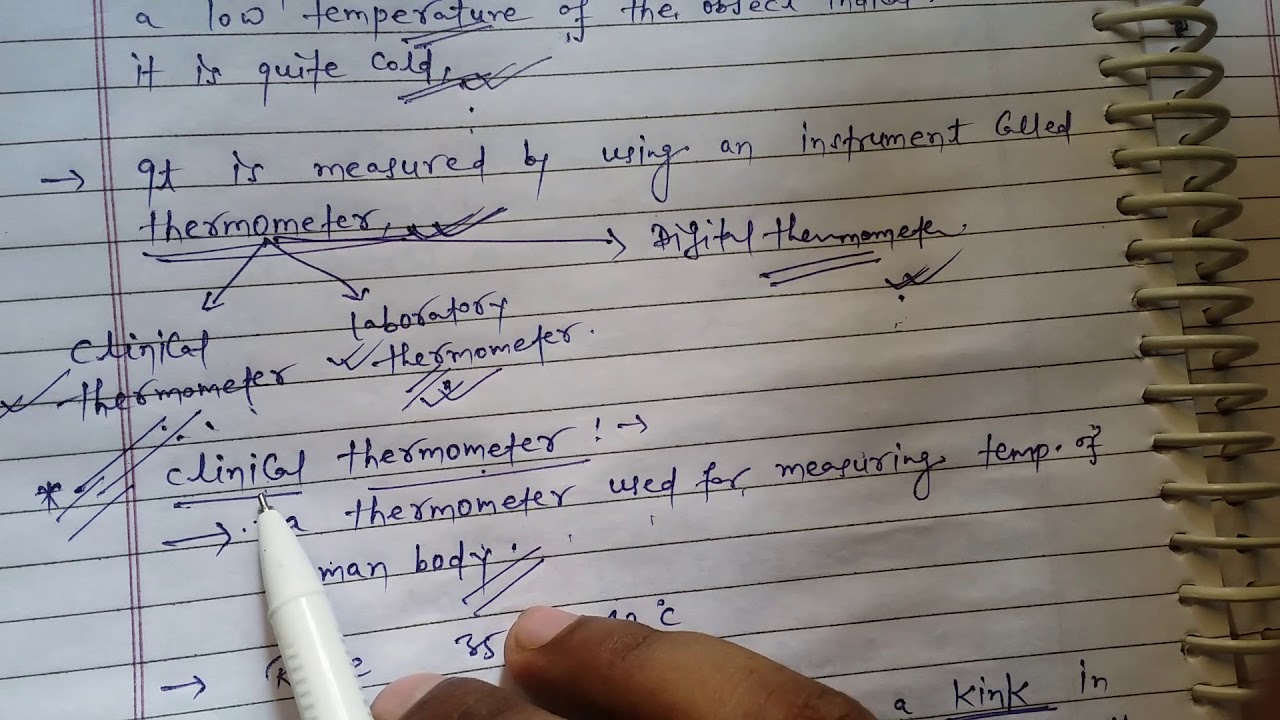 a low temperature of the object
it is quite cold,
→ It is measured by using an instrument Called
thermometer,
→ Digital thermometer.
Clinical
thermometer
laboratory
thermometer.
* Clinical thermometer : →
→ a thermometer used for measuring temp. of
man body.
→ 35 °C
a kink in